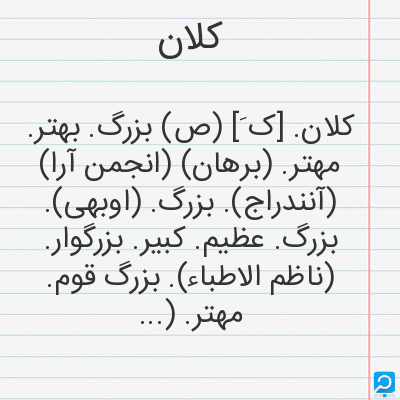 کلان
کلان. [ک َ] (ص) بزرگ. بهتر.
مهتر. (برهان) (انجمن آرا)
(آنندراج). بزرگ. (اوبهی).
بزرگ. عظیم. کبیر. بزرگوار.
(ناظم الاطباء). بزرگ قوم.
مهتر. (...